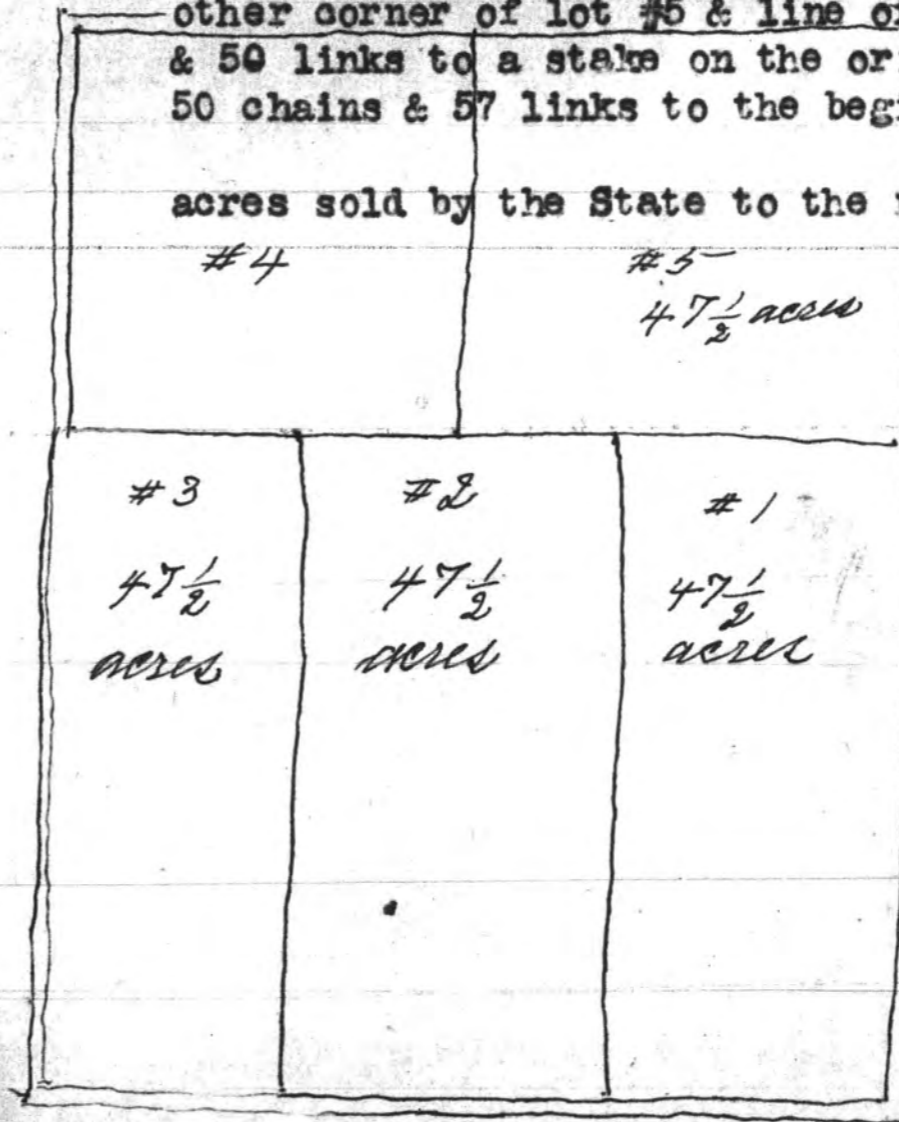 other corner of lot #5 & line
& 50 links to a stake on the
50 chains & 57 links to the
acres sold by the State to the
#4
#5
47½ acres
#3
#2
#1
47½
47½
47½
acres
acres
acres